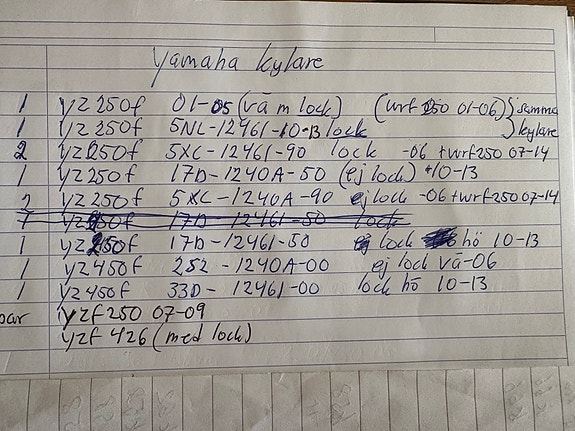 Yamaha kylare
1 yz250f 01-05 (vä m lock) (wrf 250 01-06) } samma
1 yz 250f 5NL-12461-10-13 lock } kylare
2 yz250f 5XC-12461-90 lock -06 +wrf250 07-14
1 yz250f 17D-1240A-50 (ej lock) 10-13
2 yz250f 5XC-1240A-90 ej lock -06+wrf250 07-14
1 yz250f 17D-12461-50 lock
1 yz250f 17D-12461-50 ej lock hö 10-13
1 yz450f 2S2-1240A-00 ej lock vä-06
1 yz450f 33D-12461-00 lock hö 10-13
par yzf250 07-09
yzf 426 (med lock)